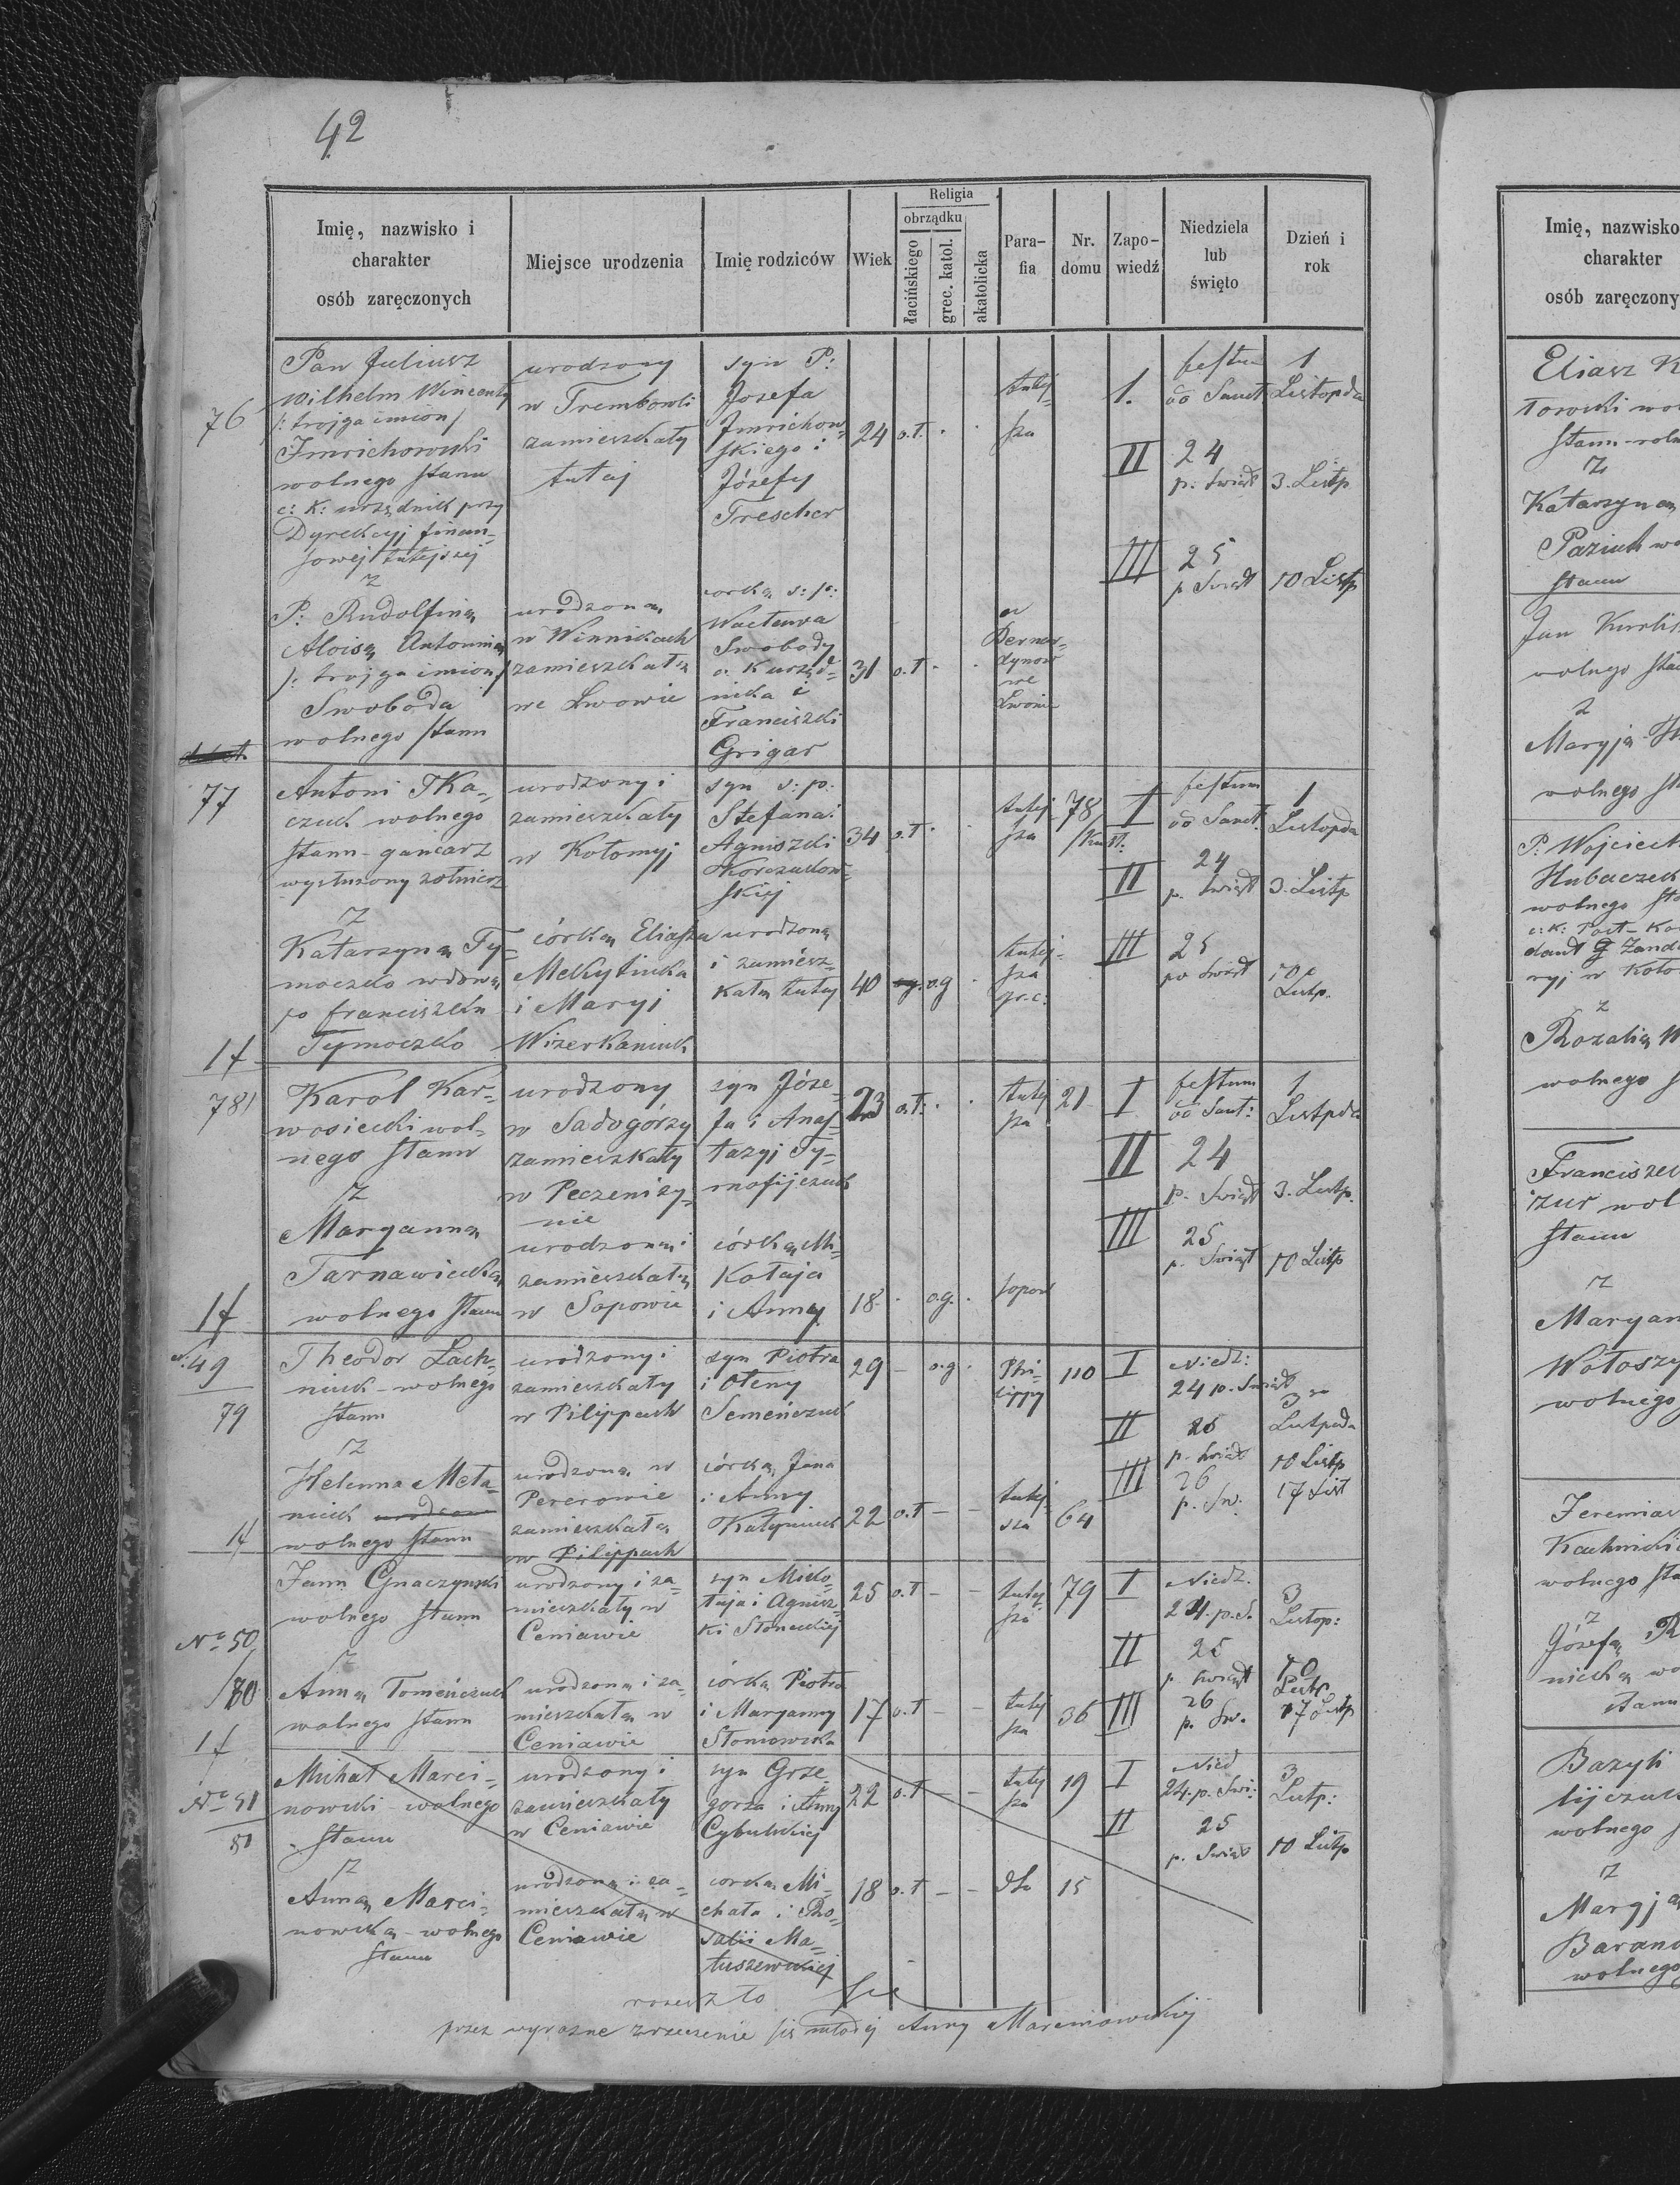 42
Imię, nazwisko i charakter osób zaręczonych
Miejsce urodzenia
Imię rodziców
Wiek
Religia
obrządku
łacińskiego
grec. katol.
akatolicka
Para-fia
Nr. domu
Zapo-wiedź
Niedziela lub święto
Dzień i rok
76
Pan Juliusz
Wilhelm Wincenty
/: trojga imion/
Imrichowski
wolnego stanu
c: K: urzędnik przy
Dyrekcyj finan-
sowej tutejszej
z
urodzony
w Trembowli
zamieszkały
tutaj
syn P:
Jozefa
Imrichow-
skiego i
Józefy
Trescher
24
o.ł.
tutej-
sza
1.
festum
oo Sanct
1
Listopda
II
24
p. Świąt
3. Listp
III
25
p Świąt
10 Listp
P: Rudolfiną
Aloisą Antoniną
/: trojga imion/
Swoboda
wolnego stanu
urodzoną
w Winnikach
zamieszkałą
we Lwowie
corką s: p:
Wacława
Swobody
c. K urzęd-
nika i
Franciszki
Grigar
31
o.ł
u
Bernar-
dynow
we
Lwowie
77
Antoni Tka-
czuk wolnego
stanu - gancarz
wysłużony żołnierz
z
urodzony i
zamieszkały
w Kołomyj
syn s: p:
Stefana i
Agniszki
Korczakow-
skiej
34
o.ł
tutej
sza
78
I
festum
oo Sanct.
1
Listopda
II
24
p. Świąt
3. Listp
III
25
po Świąt
10
Listp.
Katarzyną Ty-
moczko wdową
po franciszku
Tymoczko
córką Eliasza
Mekytiuka
i Maryj
Wizerkaniuk
urodzoną
i zamiesz-
kałą tutej
40
o.g
tutej-
sza
gr.c.
1f
78
Karol Kar-
wosiecki wol-
nego stanu
z
urodzony
w Sadogórzy
zamieszkały
w Peczeniży-
nie
syn Józe-
fa i Anas-
tazyj Ty-
mofijczuk
23
o.ł.
tutej
sza
21
I
festum
oo Sant:
1
Listopda
II
24
p. Świąt
3. Listp.
III
25
p. Świąt
10 Listp
Maryanną
Tarnawiecką
wolnego stanu
urodzoną i
zamieszkałą
w Sopowie
córką Mi-
kołaja
i Anny
18
o.g.
sopow
1f
N. 49
79
Theodor Lach-
niuk - wolnego
stanu
z
urodzony i
zamieszkały
w Pilippach
syn Piotra
i Ołeny
Semeńczuk
29
o.g.
Phi-
lippy
110
I
Niedz:
24 p. Świąt
3
Listpada
II
25
p. Świąt
10 Listp
III
26
p. Św.
17 List
Helenna Meła-
niuk
wolnego stanu
urodzoną w
Pererowie
zamieszkałą
w Pilippach
córką Jana
i Anny
Katyniuk
22
o.ł
tutej
sza
64
1f
No 50
80
1f
Jann Gnaczynski
wolnego stanu
z
urodzony i za-
mieszkały w
Ceniawie
syn Miko-
łaja i Agnisz-
ki Słoneckiej
25
o.ł
tutej
sza
79
I
Niedz.
24. p. S.
3
Listop:
II
25
p. Świąt
10
Listp
III
26
p. Św.
17 Listp
Anną Tomeńczuk
wolnego stanu
urodzoną i za-
mieszkałą w
Ceniawie
córką Piotra
i Maryanny
Słoniowska
17
o.ł
tutej
sza
36
No 51
81
Michał Marci-
nowski - wolnego
stanu
z
urodzony i
zamieszkały
w Ceniawie
syn Grze-
gorza i Anny
Cybulskiej
22
o.ł
tutej
sza
19
I
Nied
24. p. Świ:
3
Listp:
II
25
p. Świąt
10 Listp
Anną Marci-
nowską - wolnego
stanu
urodzoną i za-
mieszkałą w
Ceniawie
corką Mi-
chała i Ro-
salii Ma-
tuszewskiej
18
o.ł
dto
15
rozeszło się
przez wyrazne zrzeczenie się młodej Anny Marcinowskiej
Imię, nazwisko
charakter
osób zaręczony
Eliasz K
stanu - roln
z
Katarzyną
Paziuk wo
stanu
Jan Kurlis
wolnego sta
z
Maryją
wolnego st
P: Wojciech
Hubaczek
wolnego sta
ryj w Koło
z
Rozalią
wolnego s
Franciszek
wol
stanu
z
Maryan
Wołoszy
wolnego
Jeremias
wolnego sta
z
Józefą R
nicką wo
stanu
Bazyli
lijczuk
wolnego
z
Maryją
Barano
wolnego